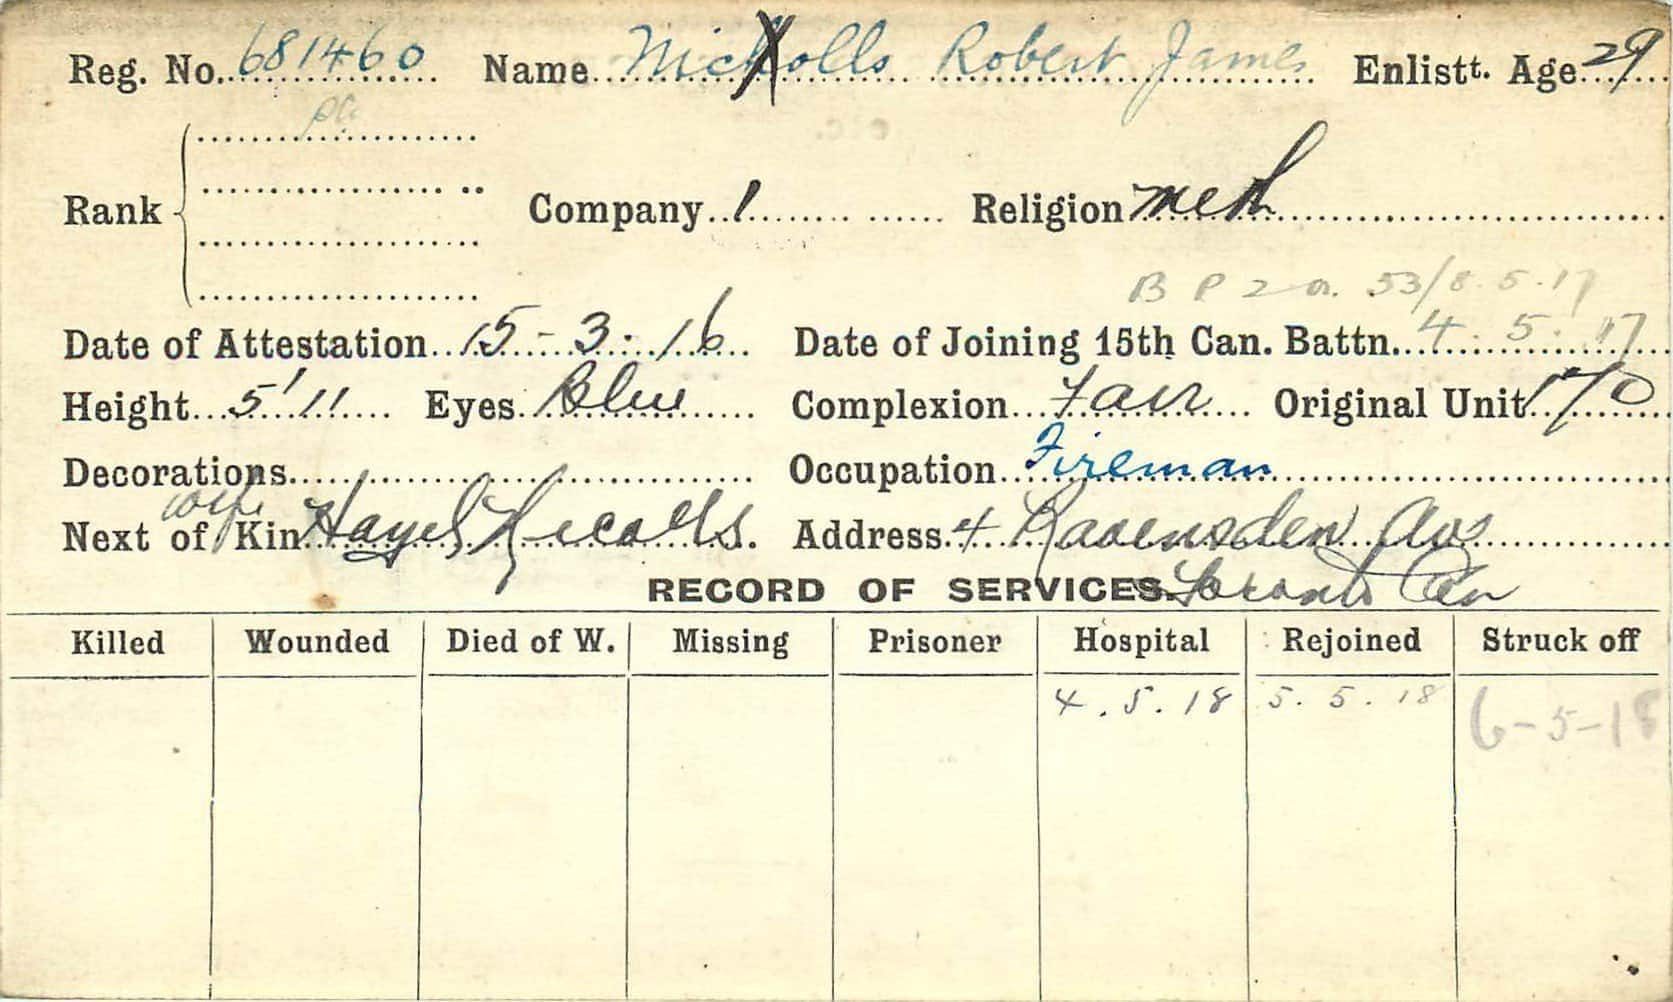 Reg. No. 681460 Name Nickolls Robert James Enlistt. Age 29
Rank Company 1 Religion Meth
53/8.5.17
Date of Attestation 15-3-16 Date of Joining 15th Can. Battn. 4.5.17
Height 5'11 Eyes Blue Complexion Fair Original Unit 170
Decorations Occupation Fireman
wife
Next of Kin Hazel Nicolls. Address 4 Ravensden Ave
RECORD OF SERVICES. Toronto Can
Killed Wounded Died of W. Missing Prisoner Hospital Rejoined Struck off
4.5.18 5.5.18 6-5-18